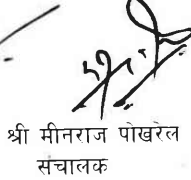 श्री मीनराज पोखरेल
संचालक